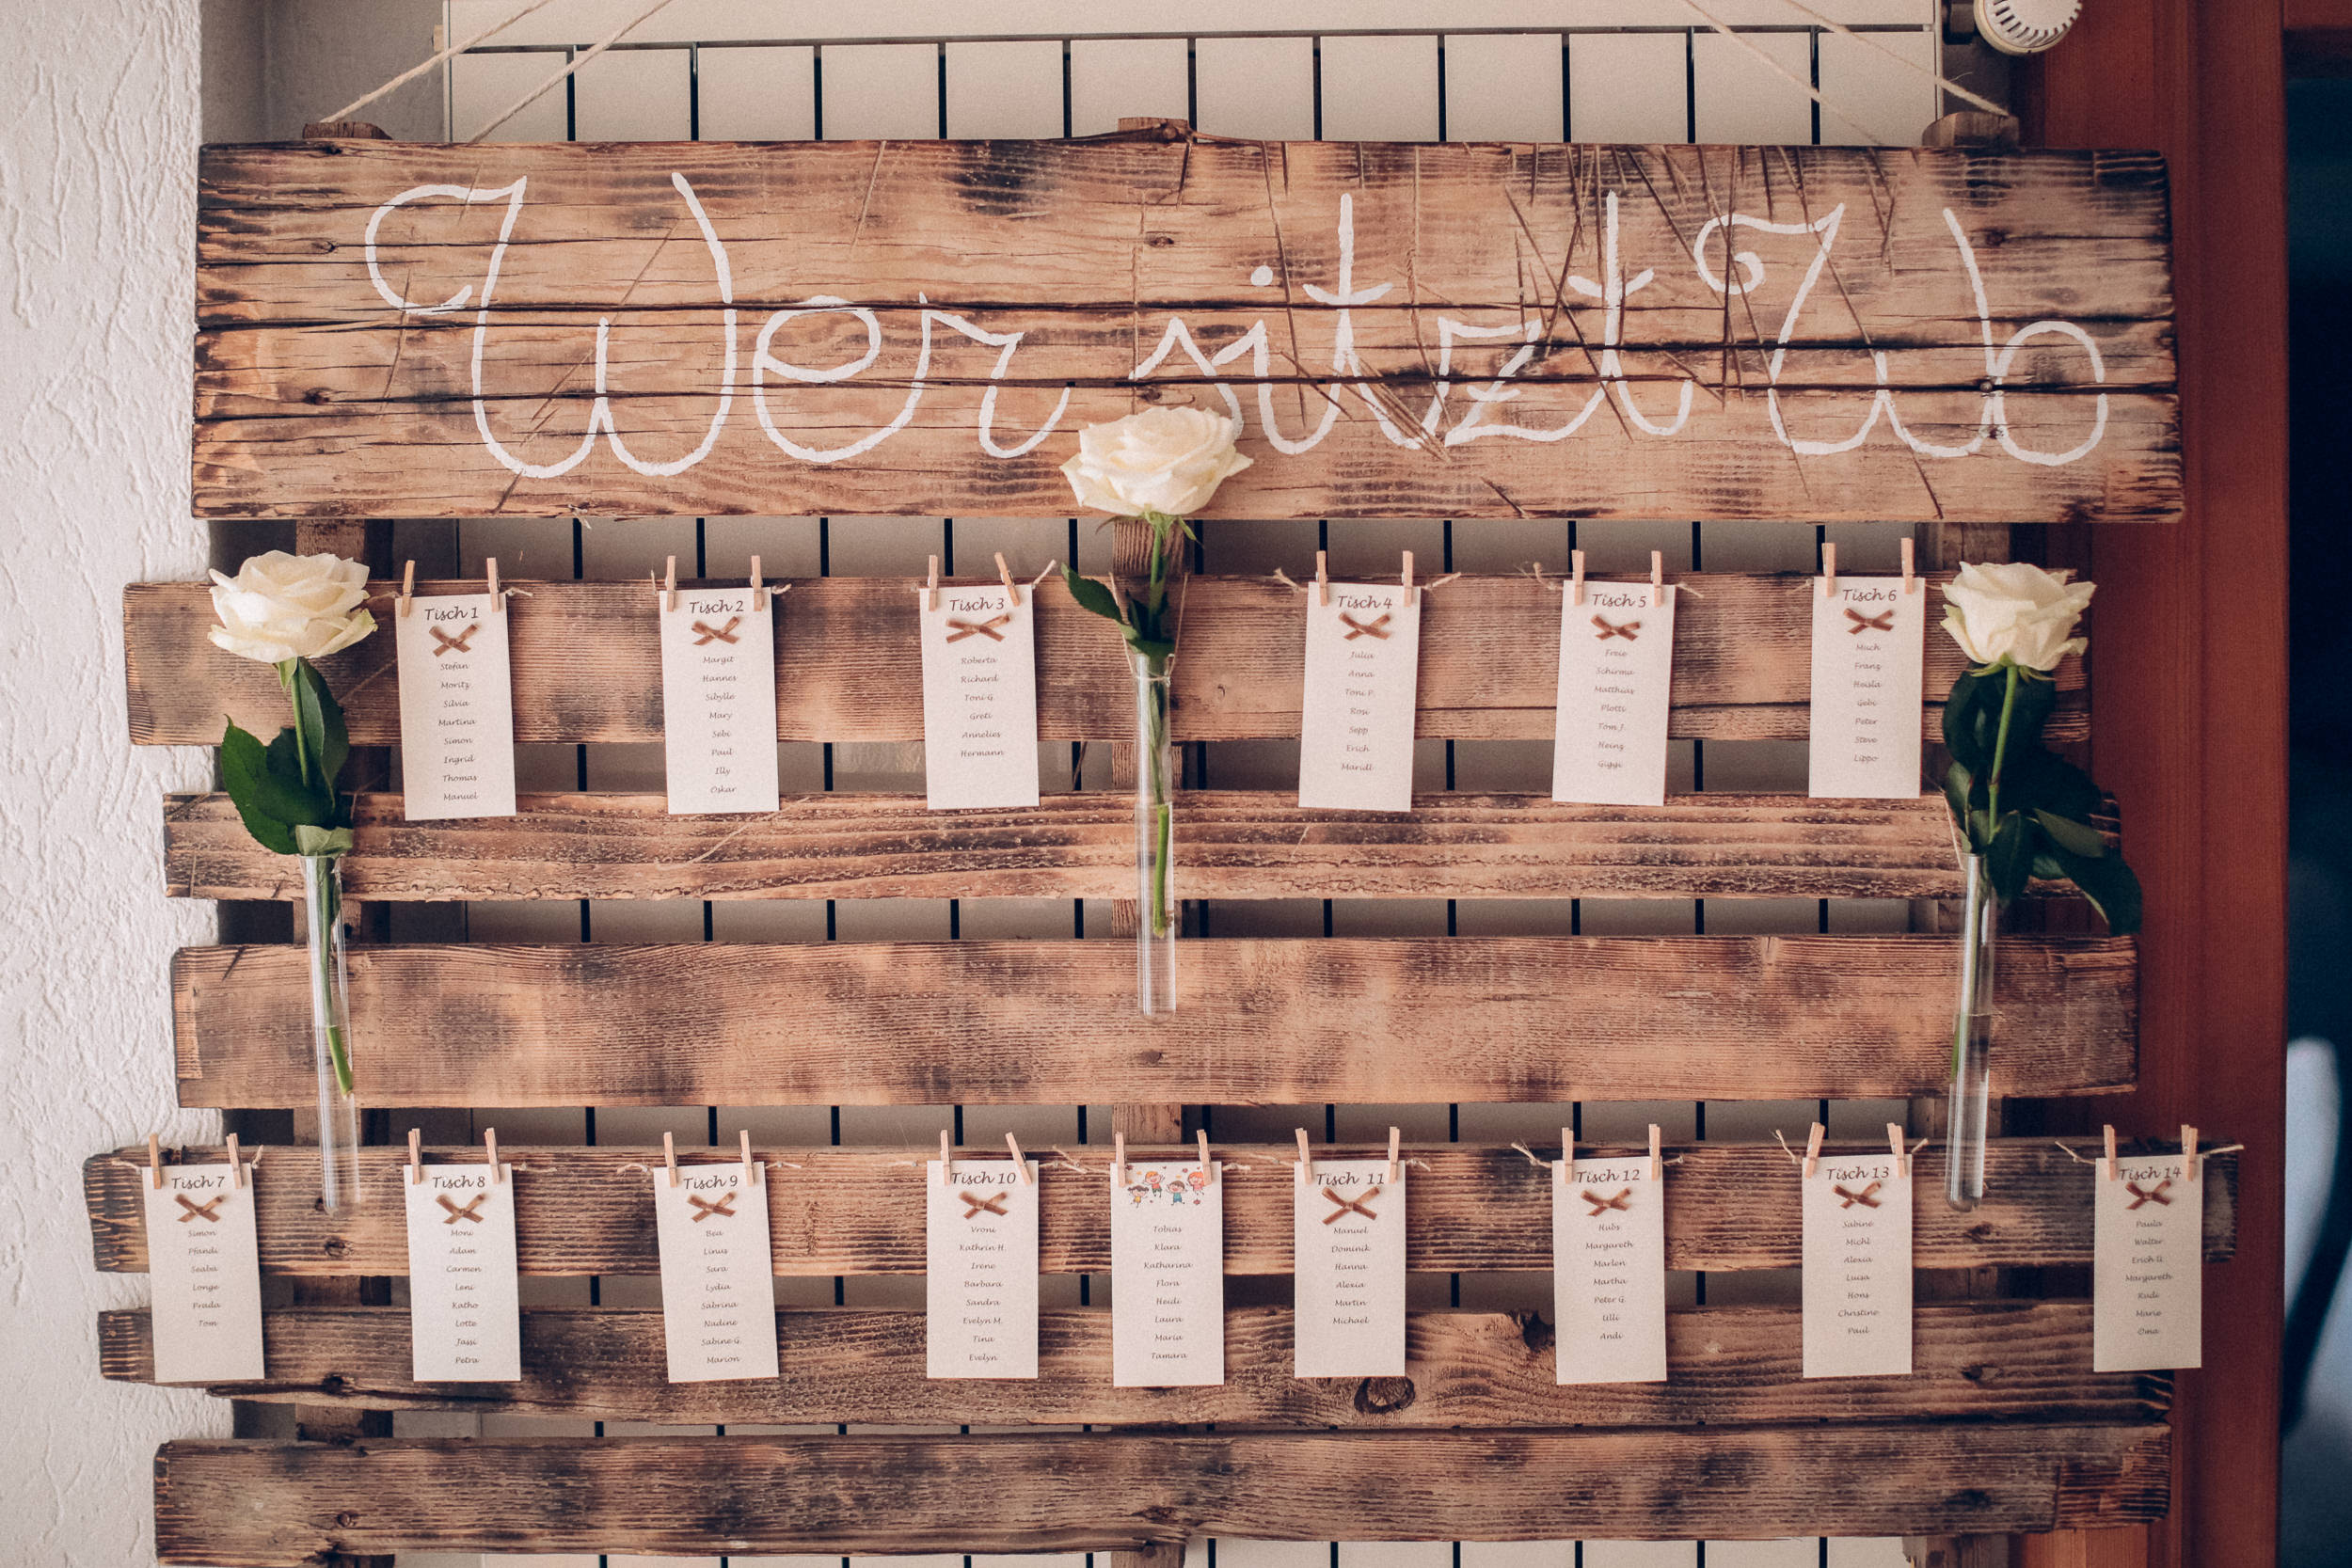 Wer sitzt Wo
Tisch 1
Stefan
Moritz
Silvia
Martina
Simon
Ingrid
Thomas
Manuel
Tisch 2
Margit
Hannes
Sibylle
Mary
Sebi
Paul
Illy
Oskar
Tisch 3
Roberta
Richard
Toni G
Greti
Annelies
Hermann
Tisch 4
Julia
Anna
Toni P.
Rosi
Sepp
Erich
Maridl
Tisch 5
Freie
Schirma
Matthias
Plotti
Tom J
Heinz
Giggi
Tisch 6
Much
Franz
Heisla
Gebi
Peter
Steve
Lippo
Tisch 7
Simon
Pfandi
Seaba
Longe
Prada
Tom
Tisch 8
Moni
Adam
Carmen
Leni
Katho
Lotte
Jassi
Petra
Tisch 9
Bea
Linus
Sara
Lydia
Sabrina
Nadine
Sabine G
Marion
Tisch 10
Vroni
Kathrin H.
Irene
Barbara
Sandra
Evelyn M.
Tina
Evelyn
Tobias
Klara
Katharina
Flora
Heidi
Laura
Maria
Tamara
Tisch 11
Manuel
Dominik
Hanna
Alexia
Martin
Michael
Tisch 12
Hubs
Margareth
Marlen
Martha
Peter G
Ulli
Andi
Tisch 13
Sabine
Michl
Alexia
Luisa
Hons
Christine
Paul
Tisch 14
Paula
Walter
Erich G
Margareth
Rudi
Marie
Oma